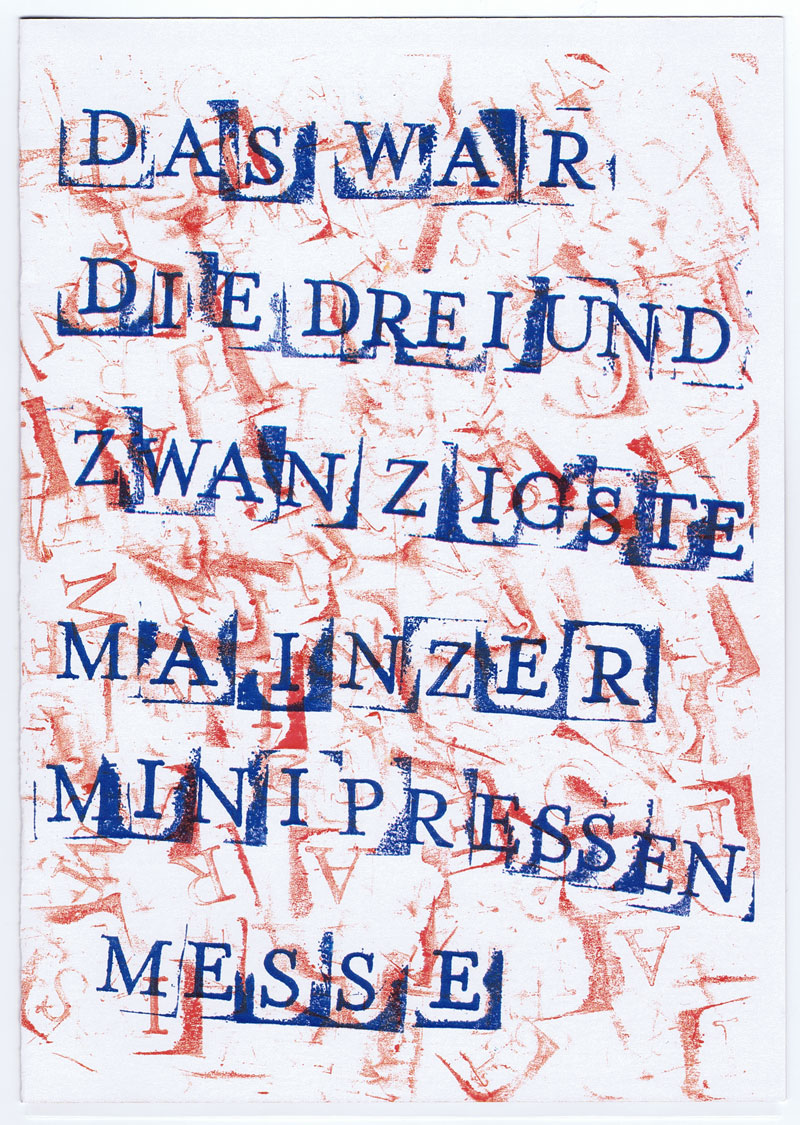 DAS WAR
DIE DREIUND
ZWANZIGSTE
MAINZER
MINIPRESSEN
MESSE